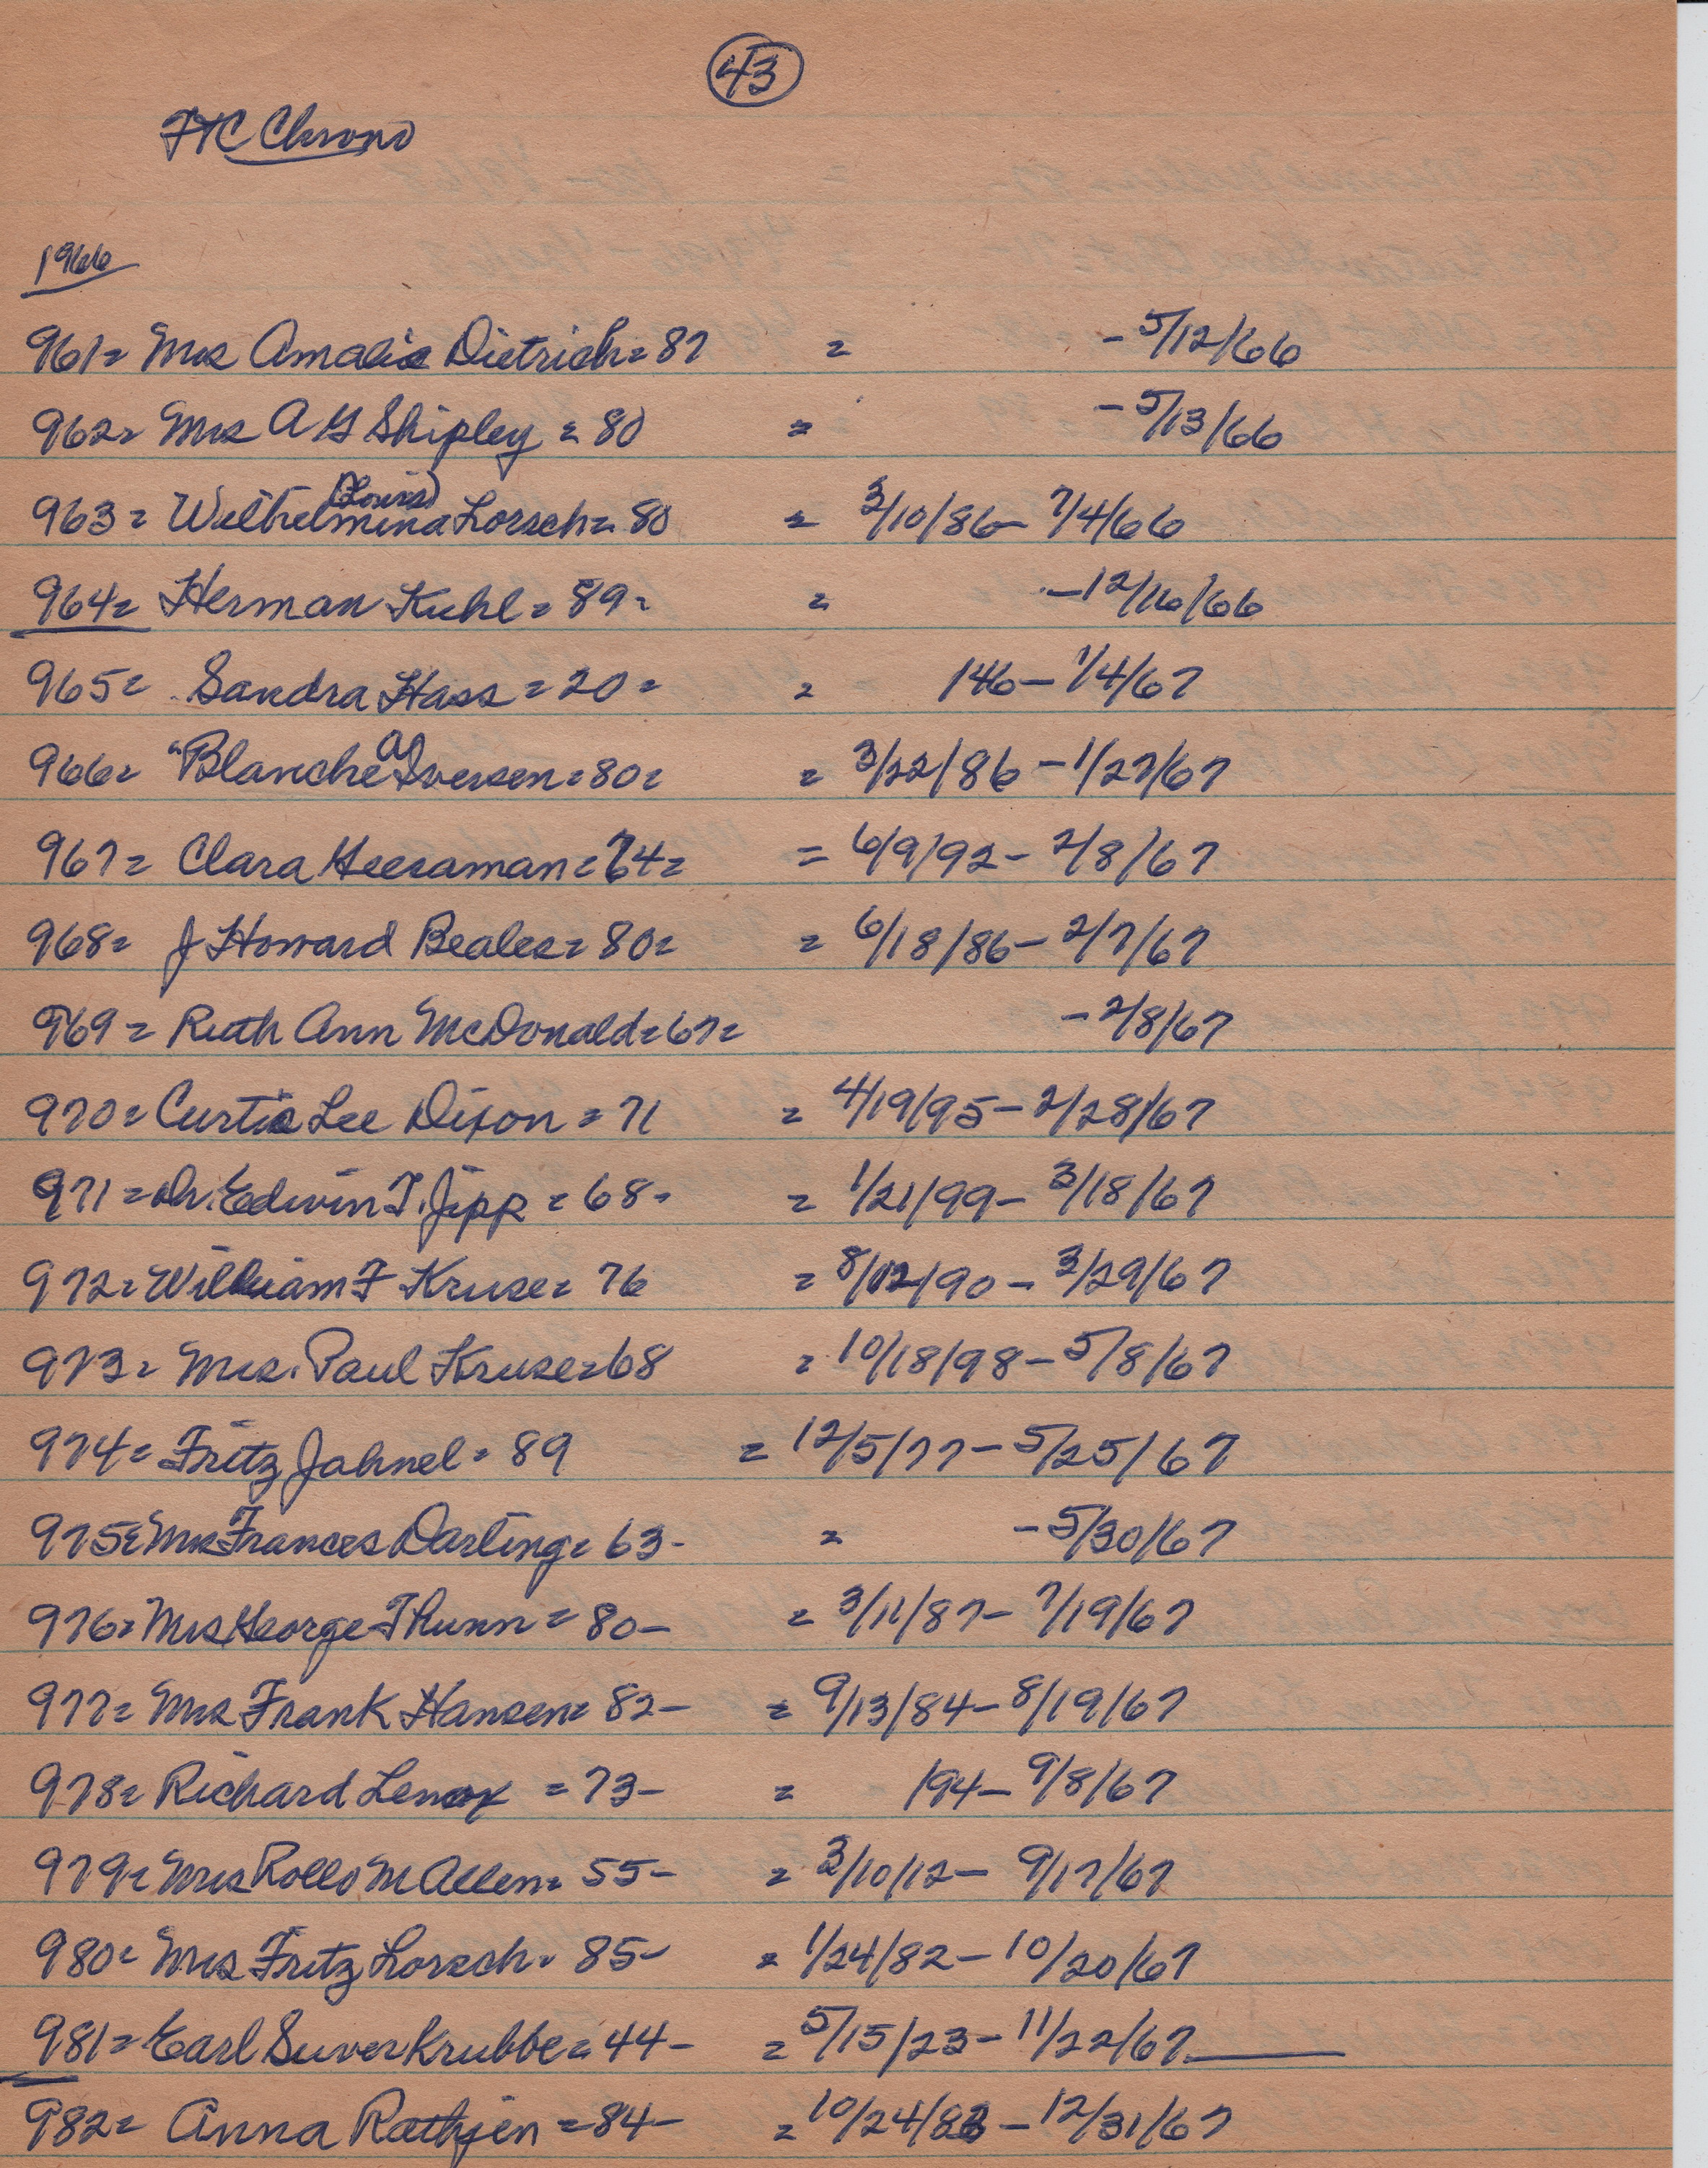 43
FTC Chrono
1966
961= Mrs Amalia Dietrich= 87 = - 5/12/66
962= Mrs A G Shipley = 80 = - 5/13/66
(Louis)
963= Wilhelmina Lorsch= 80 = 3/10/86- 7/4/66
964= Herman Kuhl= 89- = -12/16/66
965= Sandra Hass = 20= = 1946- 1/4/67
966= "Blanche A Iversen= 80= = 3/22/86 - 1/27/67
967= Clara Geesaman= 74= = 6/9/92- 2/8/67
968= J Howard Beales= 80= = 6/18/86- 2/7/67
969= Ruth Ann McDonald= 67= - 2/8/67
970= Curtis Lee Dixon = 71 = 4/19/95- 2/28/67
971= Dr. Edwin T. Jipp = 68- = 1/21/99- 3/18/67
972= William F Kruse= 76 = 8/12/90- 3/29/67
973= Mrs. Paul Kruse= 68 = 10/18/98- 5/8/67
974= Fritz Jahnel= 89 = 12/5/77- 5/25/67
975= Mrs Frances Darling= 63- = - 5/30/67
976= Mrs George Thunn = 80- = 3/11/87- 7/19/67
977= Mrs Frank Hansen= 82- = 9/13/84- 8/19/67
978= Richard Lenox = 73- = 194- 9/8/67
979= Mrs Rollo M Allen= 55- = 3/10/12- 9/17/67
980= Mrs Fritz Lorsch= 85- = 1/24/82- 10/20/67
981= Earl Suverkrubbe= 44- = 5/15/23- 11/22/67
982= Anna Rathjen = 84- = 10/24/83 - 12/31/67